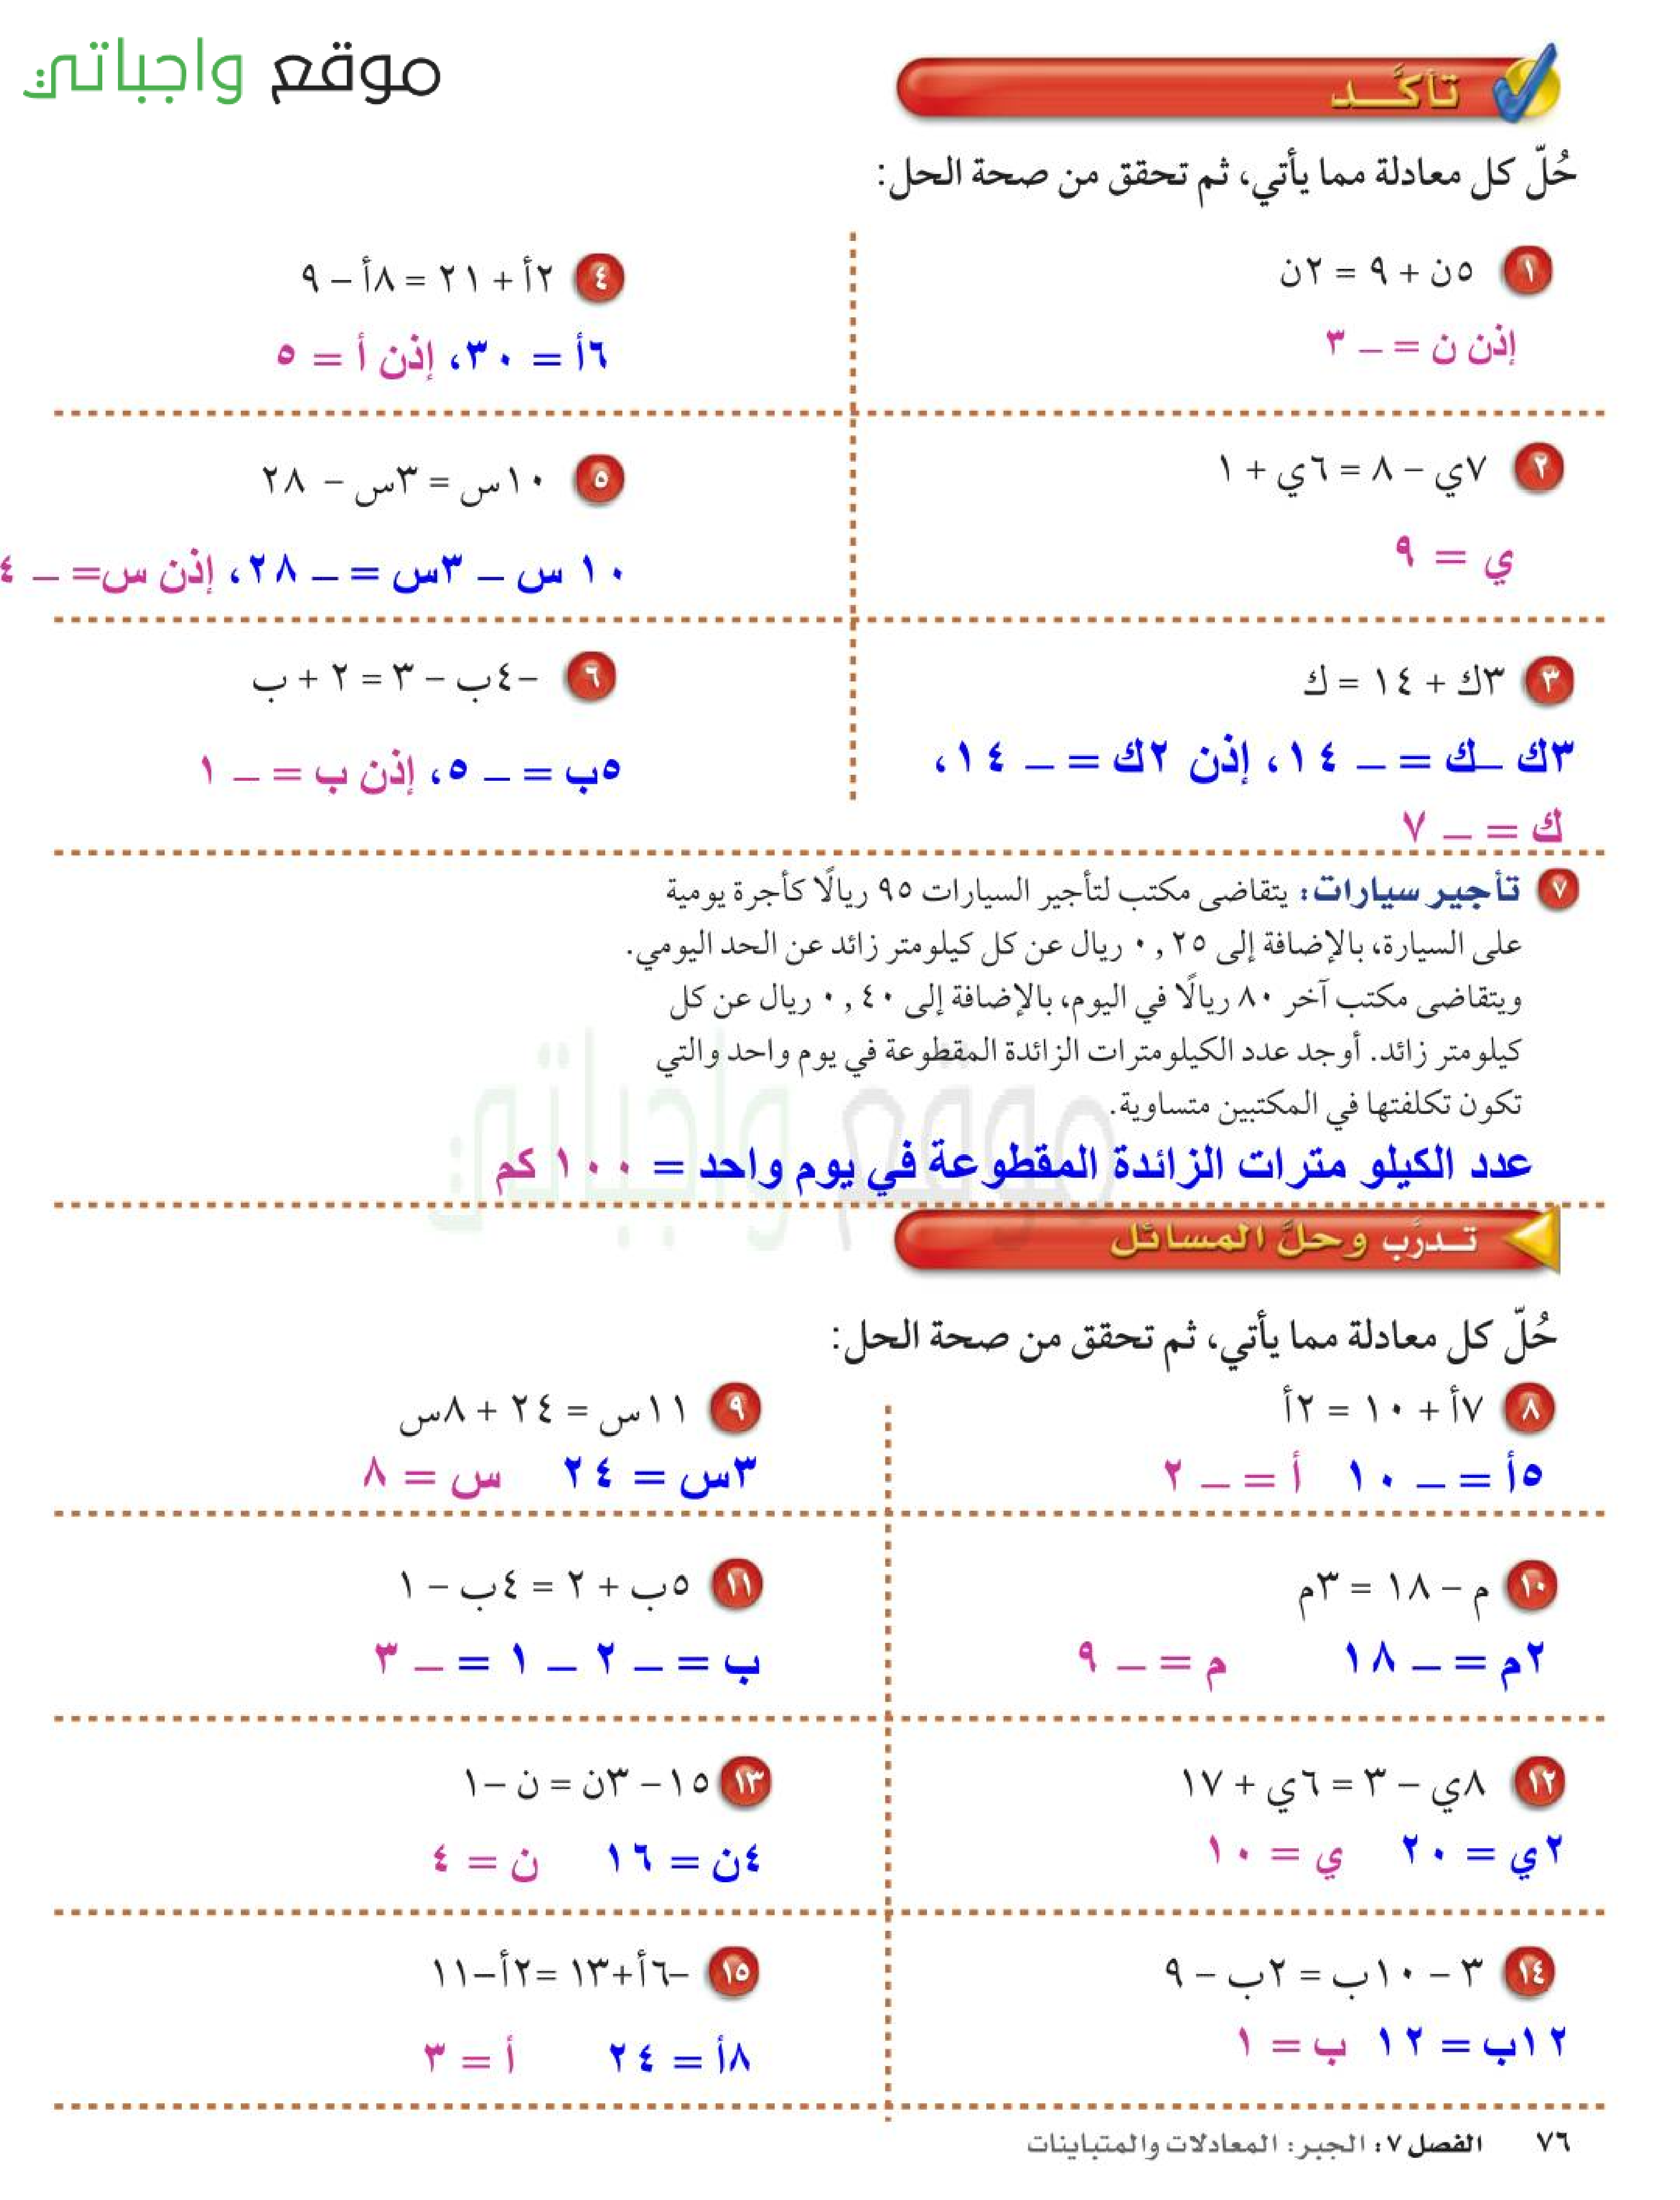 موقع واجباتي
تأكَّد
حُلّ كل معادلة مما يأتي، ثم تحقق من صحة الحل:
١ ٥ن + ٩ = ٢ن
إذن ن = – ٣
٤ ٢أ + ٢١ = ٨أ – ٩
٦أ = ٣٠، إذن أ = ٥
٢ ٧ي – ٨ = ٦ي + ١
ي = ٩
٥ ١٠س = ٣س – ٢٨
١٠ س – ٣س = – ٢٨، إذن س= – ٤
٣ ٣ك + ١٤ = ك
٣ك –ك = – ١٤، إذن ٢ك = – ١٤،
ك = – ٧
٦ –٤ب – ٣ = ٢ + ب
٥ب = – ٥، إذن ب = – ١
٧ تأجير سيارات: يتقاضى مكتب لتأجير السيارات ٩٥ ريالًا كأجرة يومية
على السيارة، بالإضافة إلى ٠,٢٥ ريال عن كل كيلومتر زائد عن الحد اليومي.
ويتقاضى مكتب آخر ٨٠ ريالًا في اليوم، بالإضافة إلى ٠,٤٠ ريال عن كل
كيلومتر زائد. أوجد عدد الكيلومترات الزائدة المقطوعة في يوم واحد والتي
تكون تكلفتها في المكتبين متساوية.
عدد الكيلو مترات الزائدة المقطوعة في يوم واحد = ١٠٠ كم
موقع واجباتي
تـدرَّب وحلَّ المسائل
حُلّ كل معادلة مما يأتي، ثم تحقق من صحة الحل:
٨ ٧أ + ١٠ = ٢أ
٥أ = – ١٠ أ = – ٢
٩ ١١س = ٢٤ + ٨س
٣س = ٢٤ س = ٨
١٠ م – ١٨ = ٣م
٢م = – ١٨ م = – ٩
١١ ٥ب + ٢ = ٤ب – ١
ب = – ٢ – ١ = – ٣
١٢ ٨ي – ٣ = ٦ي + ١٧
٢ي = ٢٠ ي = ١٠
١٣ ١٥ – ٣ن = ن –١
٤ن = ١٦ ن = ٤
١٤ ٣ – ١٠ب = ٢ب – ٩
١٢ب = ١٢ ب = ١
١٥ –٦أ+١٣ =٢أ–١١
٨أ = ٢٤ أ = ٣
٧٦ الفصل ٧: الجبر: المعادلات والمتباينات